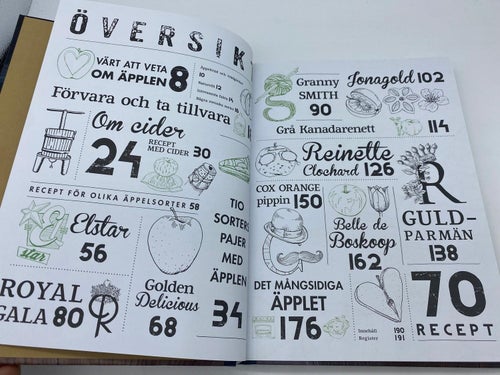 ÖVERSIK
VÄRT ATT VETA
OM ÄPPLEN 8
10
12
14
16
Förvara och ta tillvara
Om cider
24
RECEPT
MED CIDER 30
RECEPT FÖR OLIKA ÄPPELSORTER 58
Elstar
56
E
star
TIO
SORTERS
PAJER
MED
ÄPPLEN
34
ROYAL
GALA 80
R
Golden
Delicious
68
g
Granny
SMITH
90
Jonagold 102
Grå Kanadarenett 114
Reinette
Clochard 126
COX ORANGE
pippin 150
Belle de
Boskoop
162
R
GULD-
PARMÄN
138
DET MÅNGSIDIGA
ÄPPLET
176
Innehåll 190
Register 191
70
RECEPT